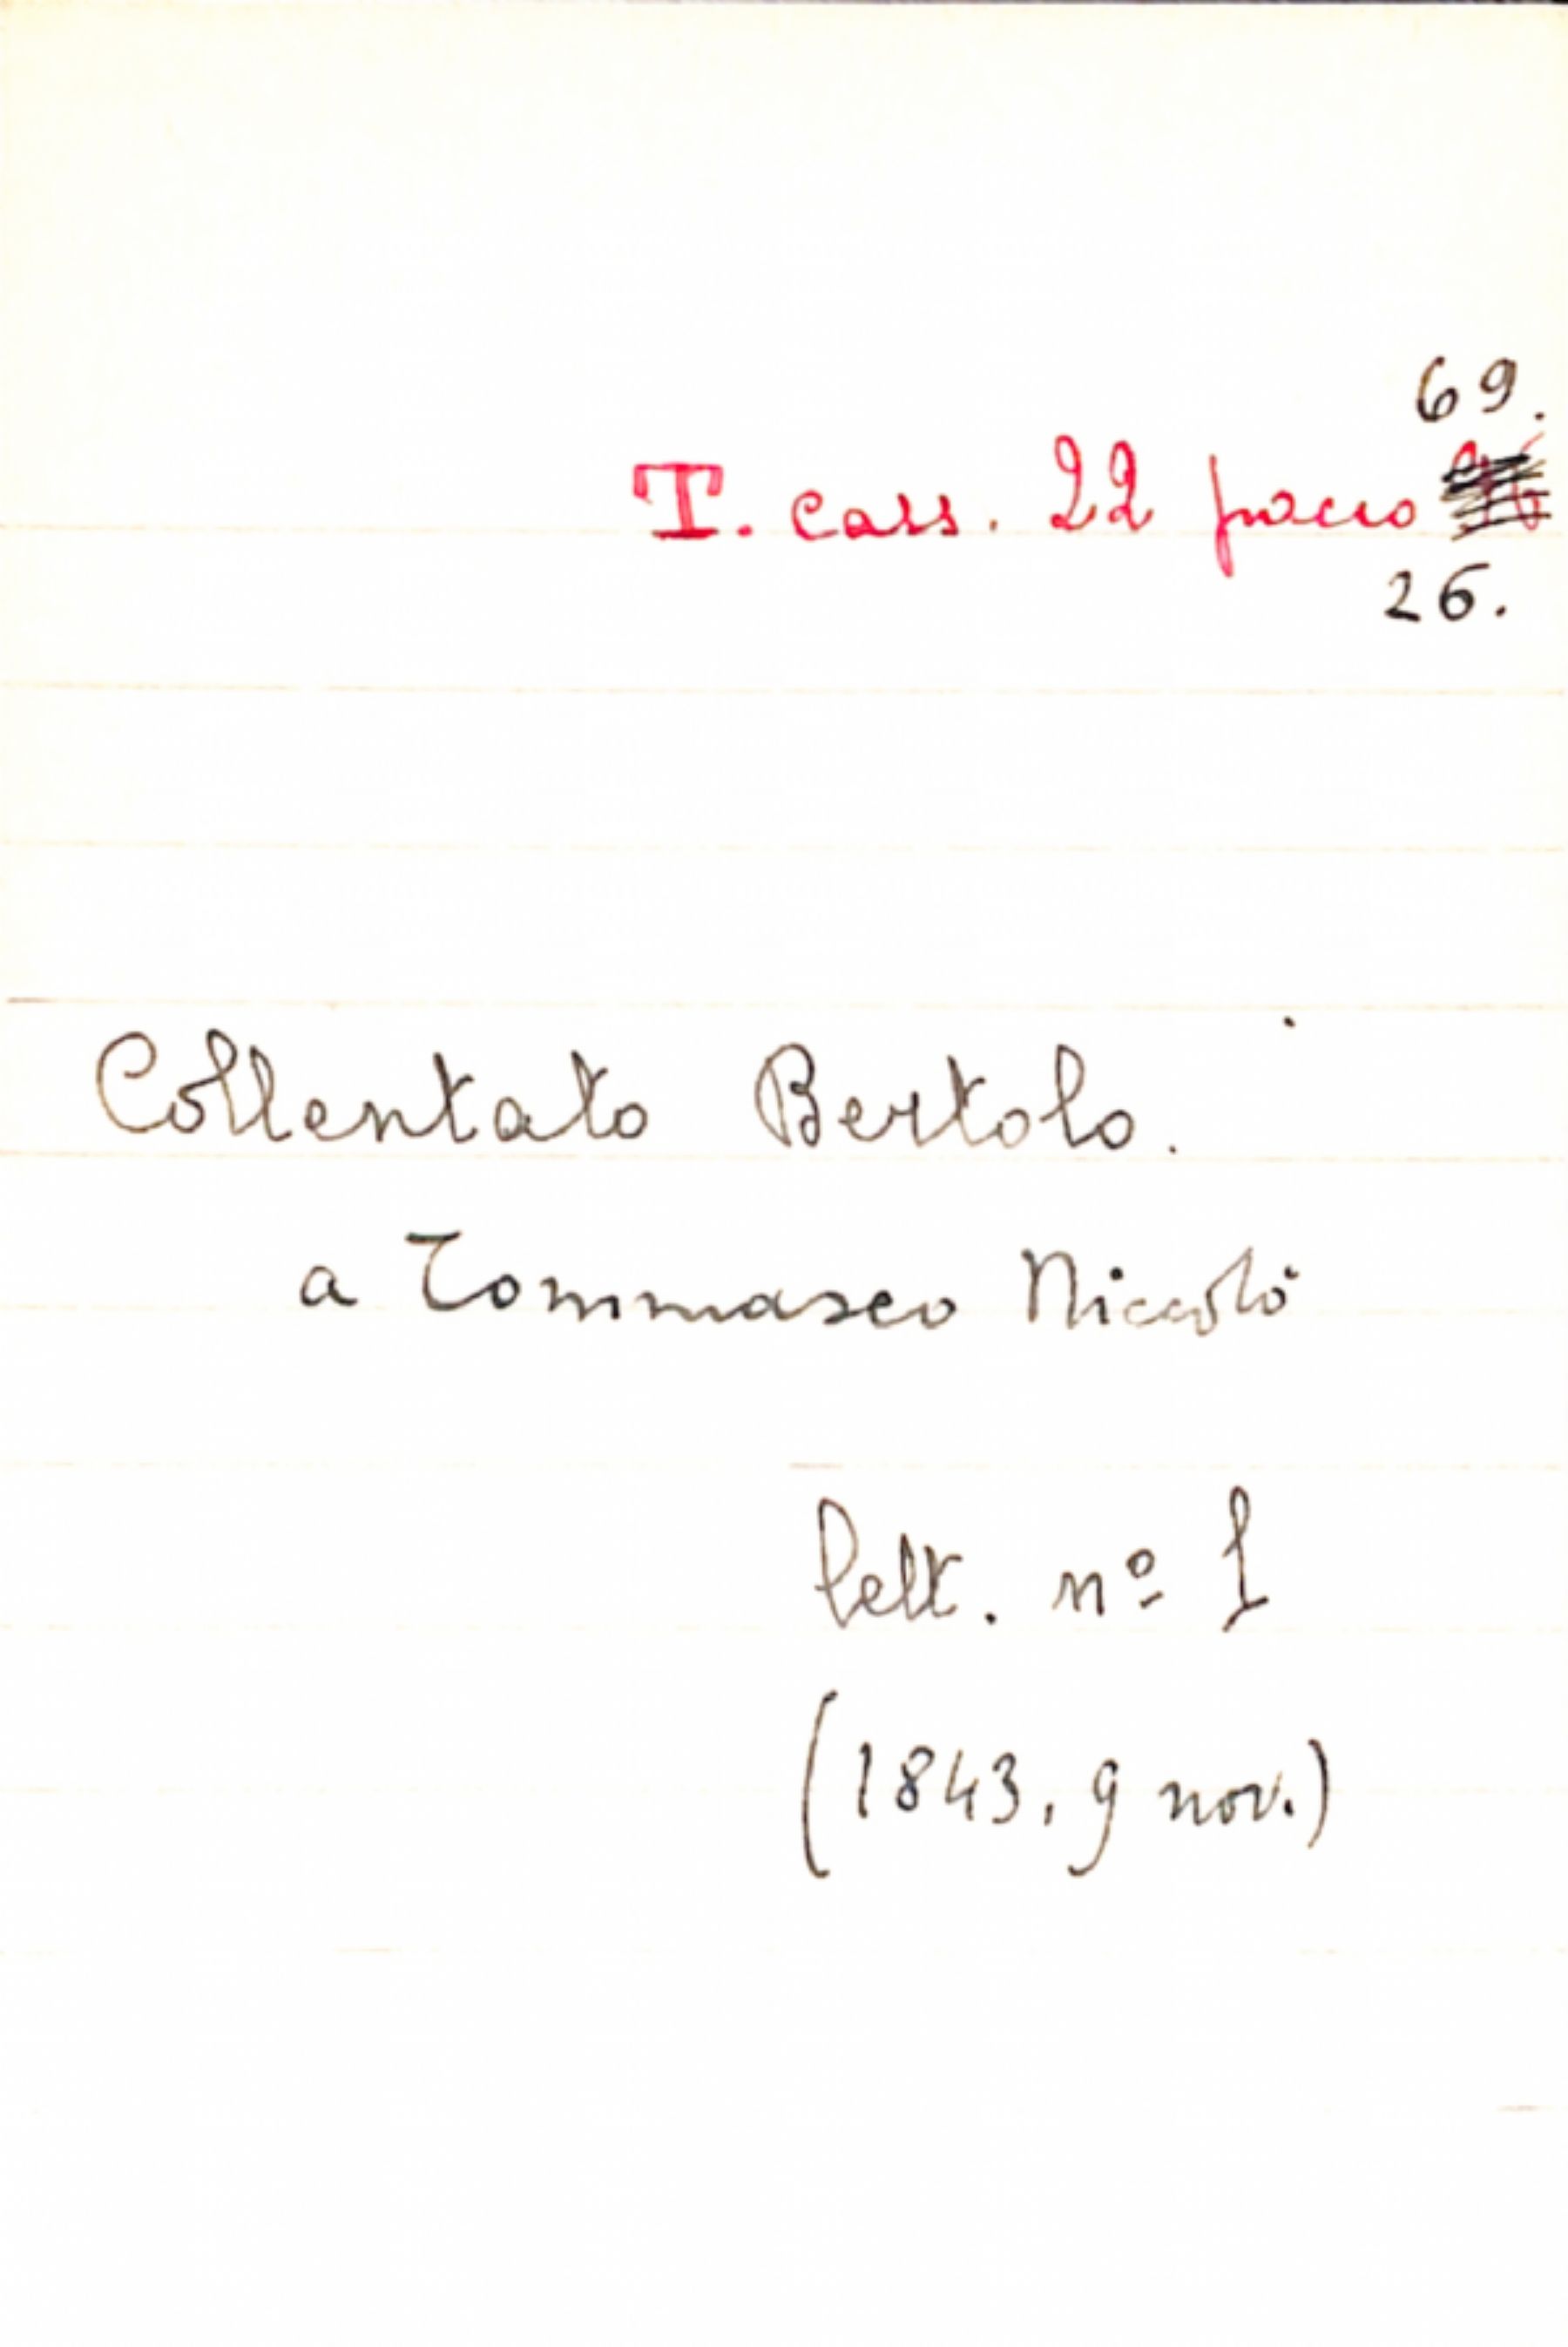 69.
T. cass. 22 pacco
26.
Collentato Bertolo.
a Tommaseo Niccolò
lett. nº 1
(1843, 9 nov.)